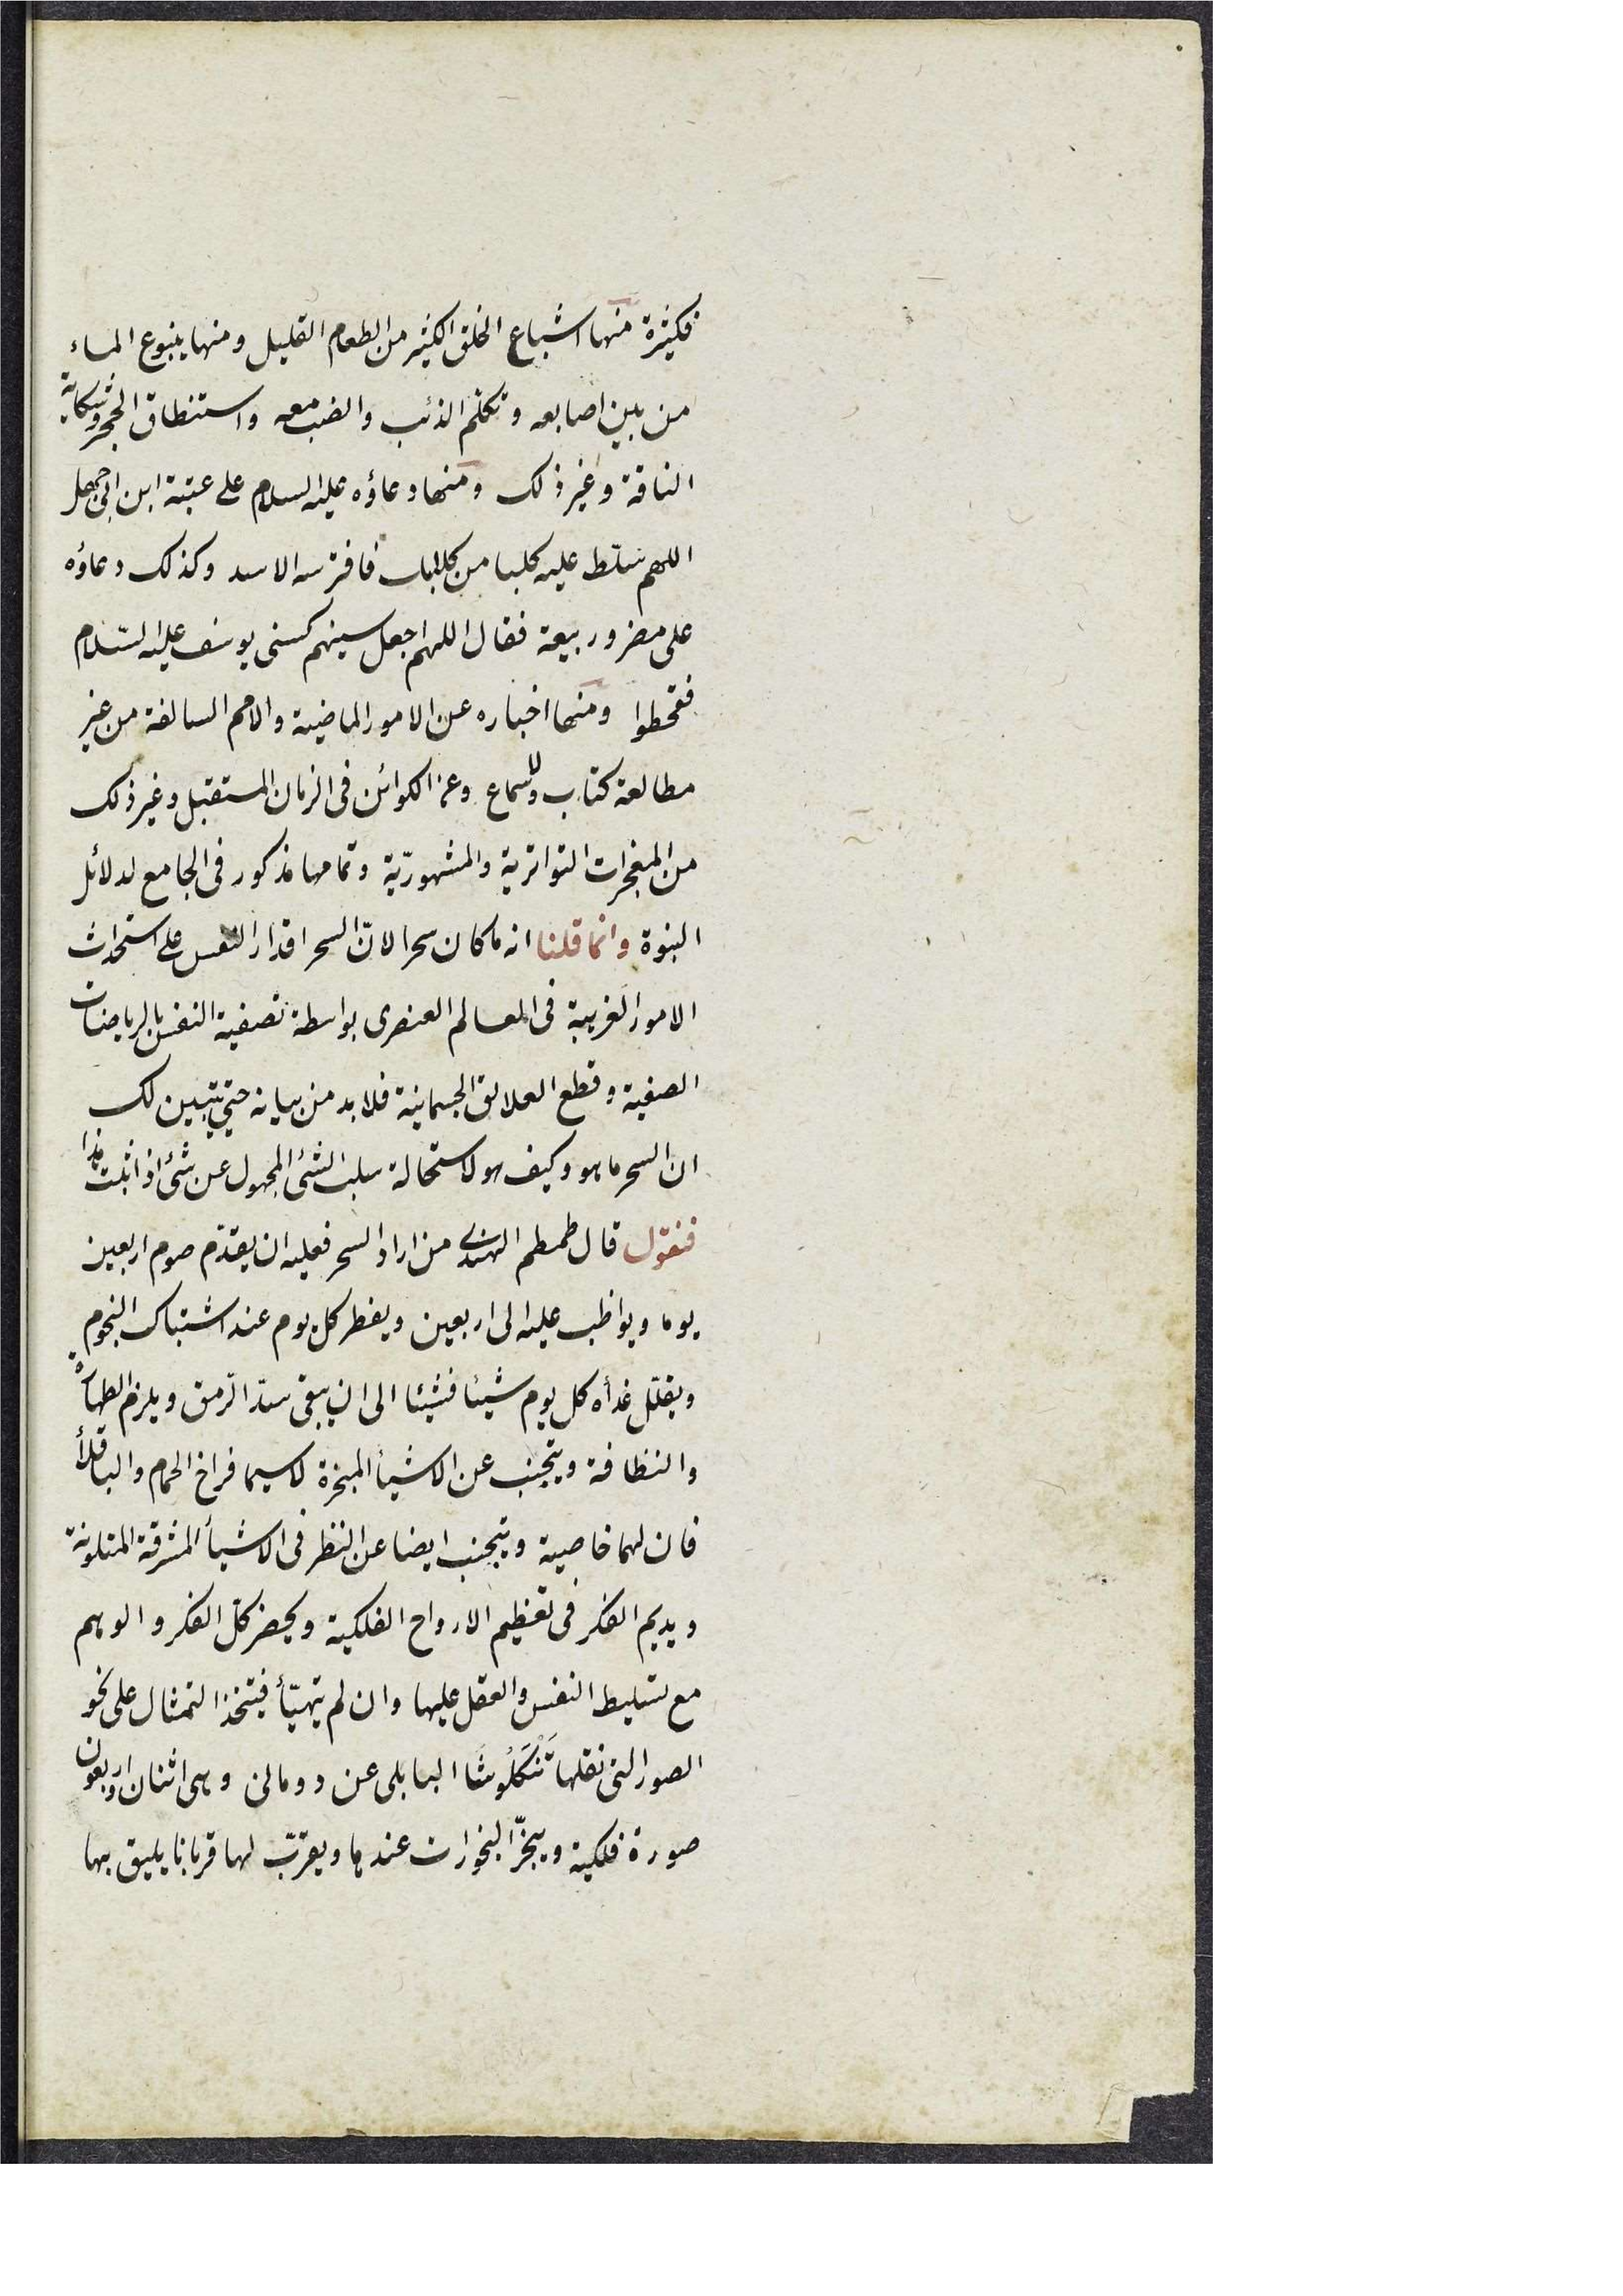 فكثيرة منها اشباع الخلق الكثير من الطعام القليل ومنها ينبوع الماء
من بين اصابعه وتكلم الذئب والضب معه واستنطاق الحجر وشكاية
الناقة وغير ذلك ومنها دعاؤه عليه السلام على عتبة ابن ابى جهل
اللهم سلّط عليه كلبا من كلابك فافترسه الاسد وكذلك دعاؤه
على مضر وربيعة فقال اللهم اجعل سينهم كسنى يوسف عليه السّلام
فقحطوا ومنها اخباره عن الامور الماضية والامم السالفة من غير
مطالعة كتاب ولا سماع وعن الكوائن فى الزمان المستقبل وغير ذلك
من المعجزات التواترية والمشهوريّة وتمامها مذكور فى الجامع لدلائل
النبوة وانما قلنا انه ما كان سحرا لانّ السحر اقدار النفس على استحداث
الامور الغريبة فى العالم العنصرى بواسطة تصفية النفس بالرياضات
الصفية وقطع العلائق الجسمانية فلا بد من بيانه حتى يتبين لك
ان السحر ما هو وكيف هو لاستحالة سلب الشئ المجهول عن شئ اذا ثبت هذا
فنقول قال طمطم الهندى من اراد السحر فعليه ان يقدّم صوم اربعين
يوما ويواظب عليه الى اربعين ويفطر كل يوم عند اشتباك النجوم
ويقلّل غدأه كل يوم شيئا فشيئا الى ان يبقى سدّ الرمق ويلزم الطهارة
والنظافة ويتجنب عن الاشيأ المبخرة لاسيما فراخ الحمام والباقلأ
فان لهما خاصية ويتجنب ايضا عن النظر فى الاشيأ المشرقة المتلونة
ويديم الفكر فى تعظيم الارواح الفلكية ويحصر كلّ الفكر والوهم
مع تسليط النفس والعقل عليها وان لم يتهيّأ فيتخذ التمثال على نحو
الصور التى نقلها تَنْكَلُوشَا البابلى عن دومالى وهى اثنان واربعون
صورة فلكية ويبخّر البخورات عندها ويقرّب لها قربانا يليق بها